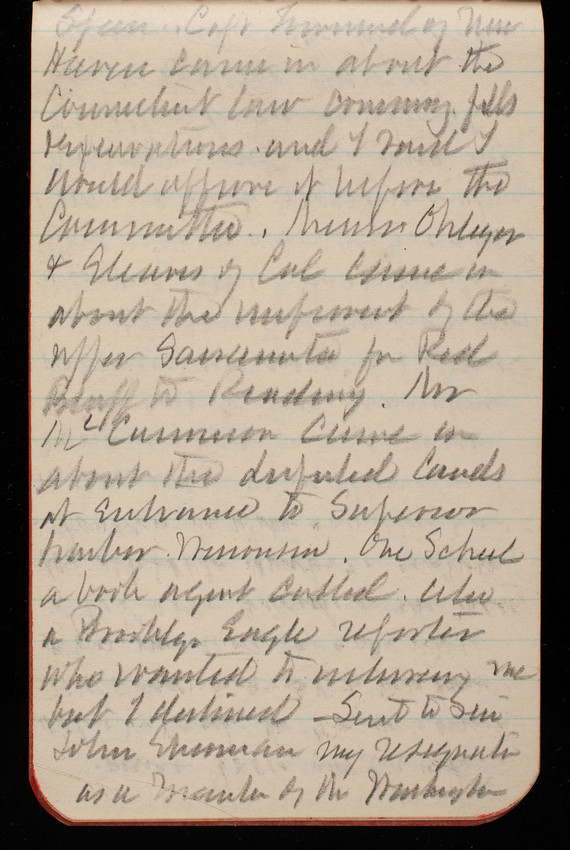 Capt Townsend of New
Haven came in about the
Connecticut law
reservations and I said I
would approve it before the
Committee.
& Gleaves of Cal came in
about the improvmt of the
upper Sacramento for Red
Bluff to Reading. Mr
McCammon came in
about the disputed lands
at Entrance to Superior
harbor Wisconsin. One Scheel
a book agent called. also
a Brooklyn Eagle reporter
who wanted to interview me
but I declined - Sent to Sen
John Sherman my resignati
as a Member of the Washington